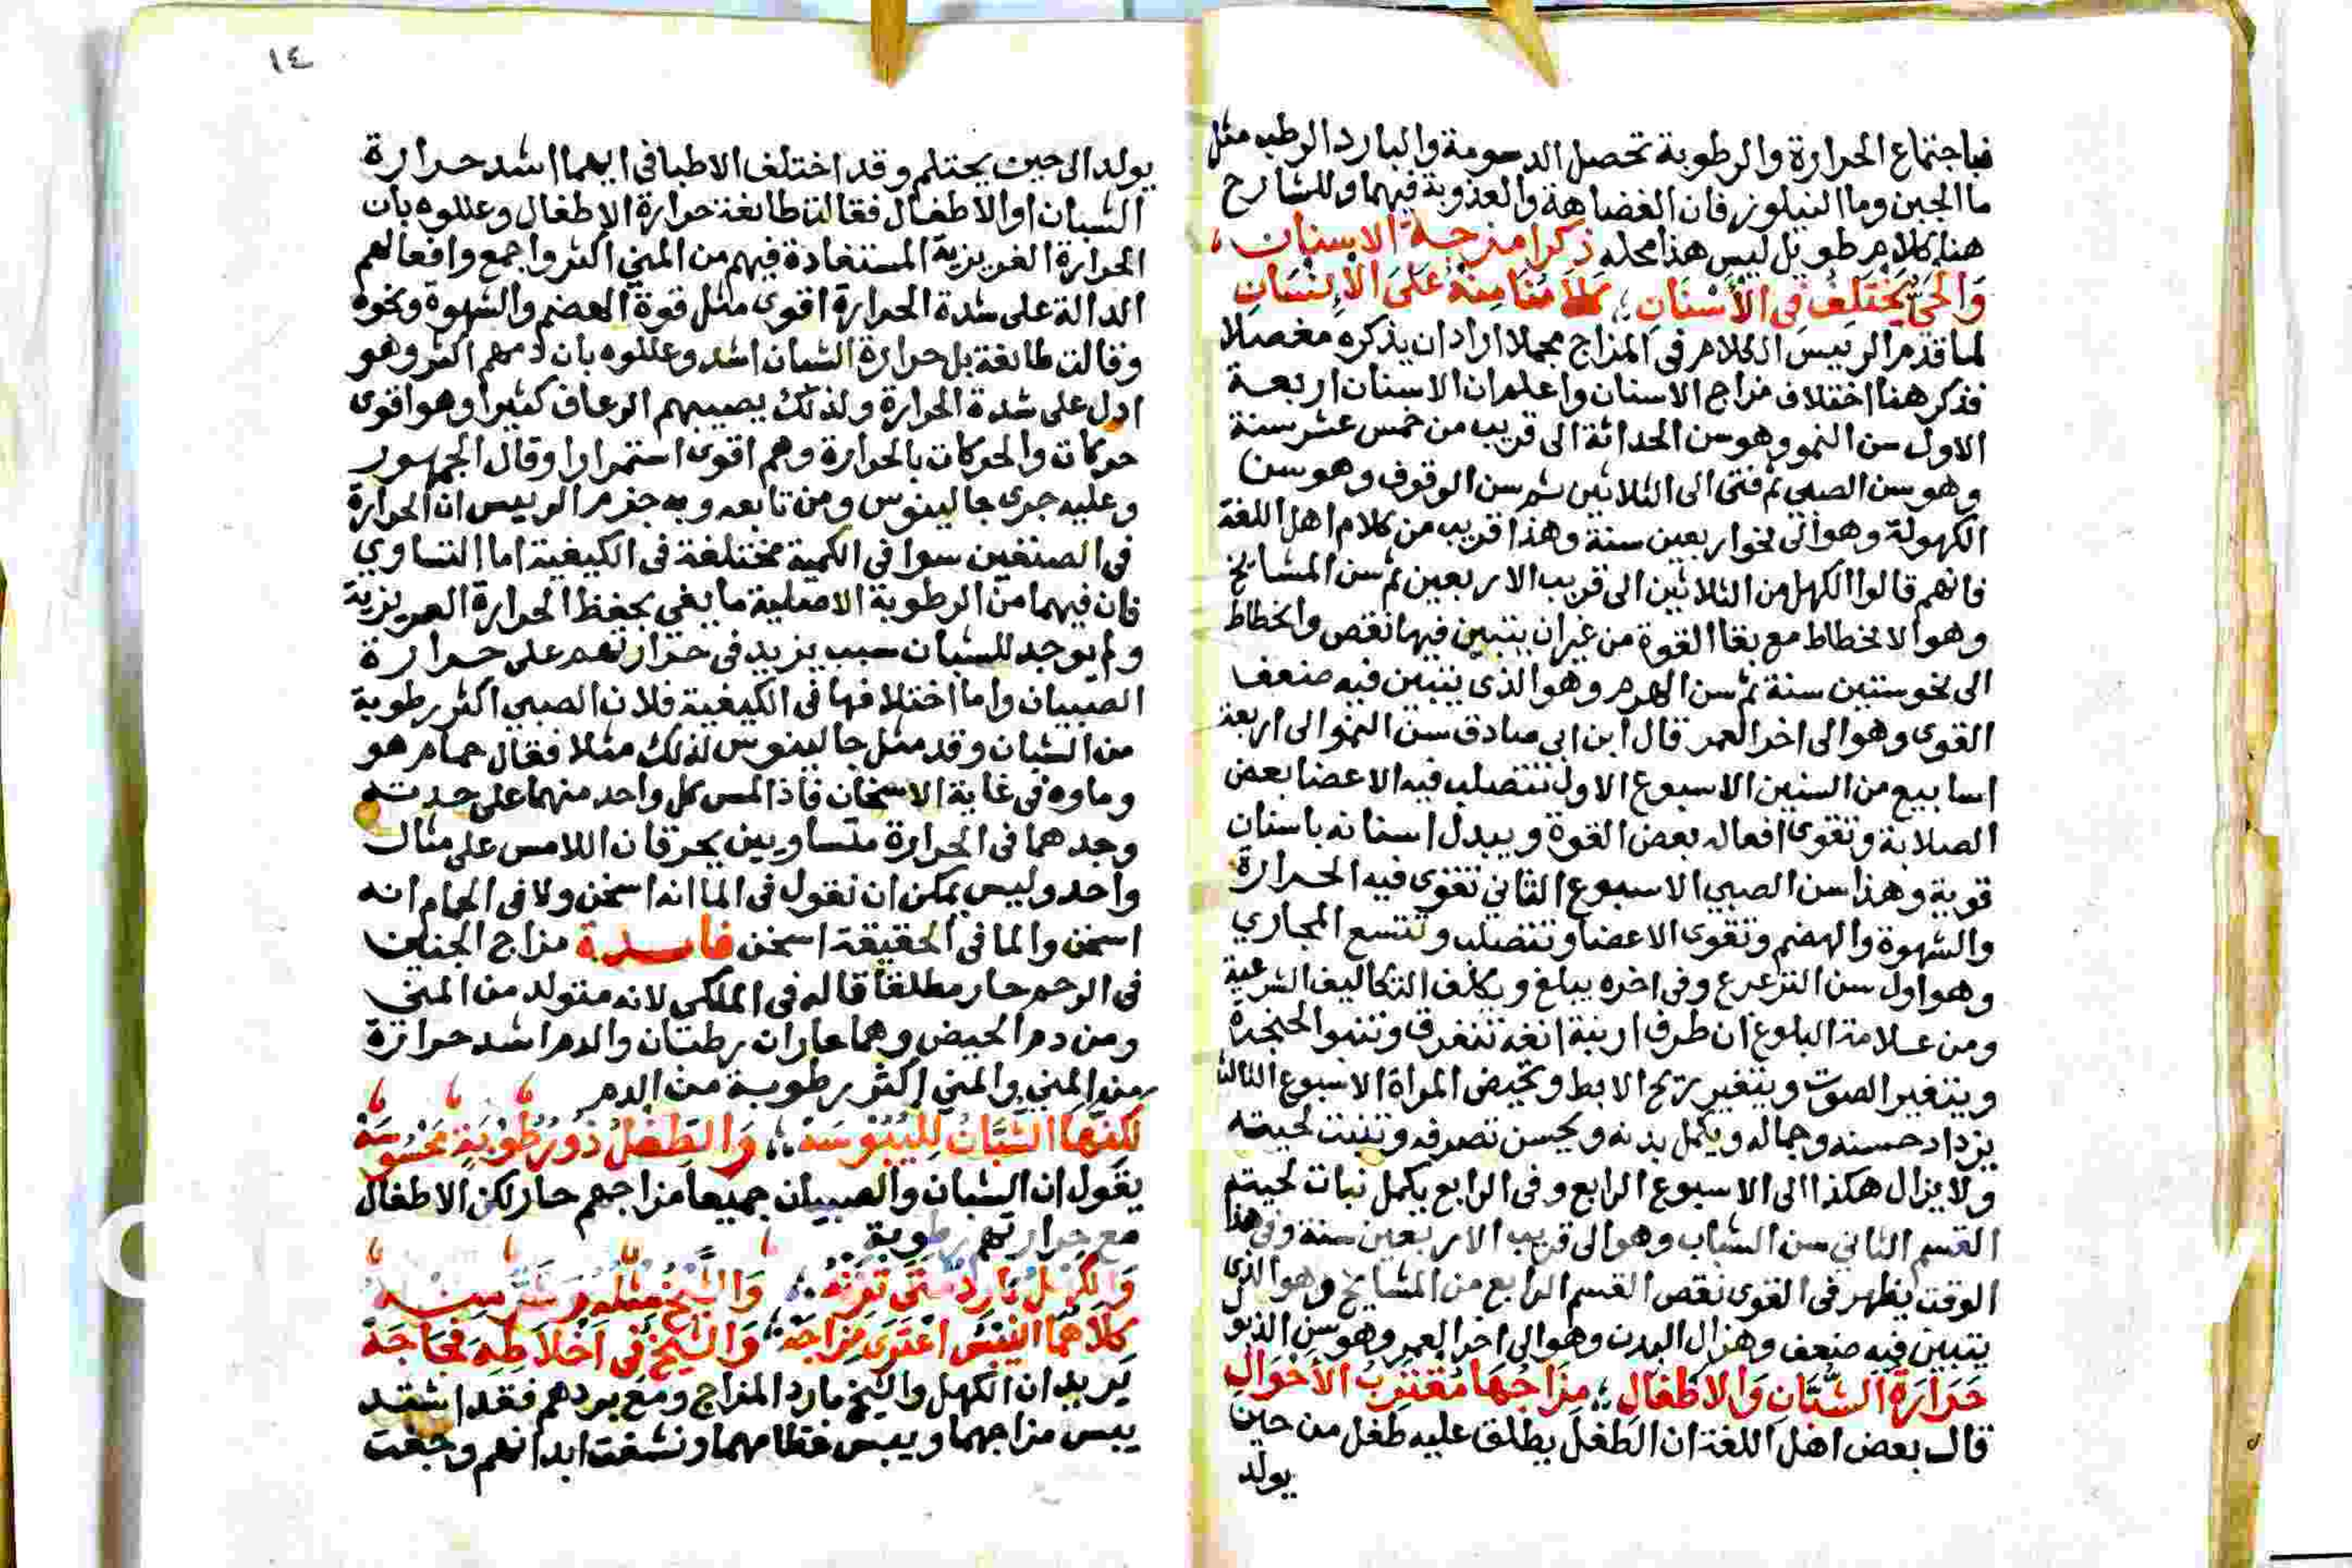 فباجتماع الحرارة والرطوبة تحصل الدسومة والبارد الرطب مثل
ما الجبن وما النيلوفر فان الغضاهة والعذوبة فيهما وللشارح
هنا كلام طويل ليس هذا محله ذكر امزجة الاسنان
وَالحَيّ يَخْتَلِفُ فى الأَسْنَانِ عَلَى الإِنْسَانِ
لما قدم الرييس الكلام فى المزاج مجملا اراد ان يذكره مفصلا
فذكر هنا اختلاف مزاج الاسنان واعلم ان الاسنان اربعة
الاول سن النمو وهو سن الحداثة الى قريب من خمس عشر سنة
وهو سن الصبي ثم فتى الى الثلاثين ثم سن الوقوف وهو سن
الكهولة وهو الى نحو اربعين سنة وهذا قريب من كلام اهل اللغة
فانهم قالوا الكهل من الثلاثين الى قريب الاربعين ثم سن المشايخ
وهو الانحطاط مع بقا القوة من غير ان يتبين فيها نقص وانحطاط
الى نحو ستين سنة ثم سن الهرم وهو الذى يتبين فيه ضعف
القوى وهو الى اخر العمر قال ابن ابي صادق سن النمو الى اربعة
اسابيع من السنين الاسبوع الاول تتصلب فيه الاعضا بعض
الصلابة وتقوى افعاله بعض القوة ويبدل اسنانه باسنان
قوية وهذا سن الصبي الاسبوع الثاني تقوى فيه الحرارة
والشهوة والهضم وتقوى الاعضا وتتصلب وتتسع المجاري
وهو اول سن الترعرع وفى اخره يبلغ ويكلف التكاليف الشرعية
ومن علامة البلوغ ان طرف ارنبة انفه تتفرق وتنبو الحنجرة
ويتغير الصوت ويتغير ريح الابط وتحيض المراة الاسبوع الثالث
يزداد حسنه وجماله ويكمل بدنه ويحسن تصرفه وتنبت لحيته
ولا يزال هكذا الى الاسبوع الرابع وفى الرابع يكمل نبات لحيته
القسم الثاني سن الشباب وهو الى قريب الاربعين سنة وفى هذا
الوقت يظهر فى القوى نقص القسم الرابع من المشايخ وهو الذى
يتبين فيه ضعف وهزال البدن وهو الى اخر العمر وهو سن الذبو
حَرَارَةُ الشُّبَّانِ وَالاَطْفَالِ مِزَاجُهَا مُقْتَرِبُ الأَحْوَالِ
قال بعض اهل اللغة ان الطفل يطلق عليه طفل من حين
يولد
١٤
يولد الى حين يحتلم وقد اختلف الاطبا فى ايهما اشد حرارة
الشبان او الاطفال فقالت طايفة حرارة الاطفال وعللوه بان
الحرارة الغريزية المستفادة فيهم من المني اكثر واجمع وافعالهم
الدالة على شدة الحرارة اقوى مثل قوة الهضم والشهوة ونحوه
وقالت طايفة بل حرارة الشبان اشد وعللوه بان دمهم اكثر وهو
ادل على شدة الحرارة ولذلك يصيبهم الرعاف كثيرا وهو اقوى
حركات والحركات بالحرارة وهم اقوى استمرارا وقال الجمهور
وعليه جرى جالينوس ومن تابعه وبه جزم الرييس ان الحرارة
فى الصنفين سوا فى الكمية مختلفة فى الكيفية اما التساوي
فان فيهما من الرطوبة الاصلية ما يفي بحفظ الحرارة الغريزية
ولم يوجد للشبان سبب يزيد فى حرارتهم على حرارة
الصبيان واما اختلافها فى الكيفية فلان الصبي اكثر رطوبة
من الشبان وقد مثل جالينوس لذلك مثلا فقال حمام هو
وماوه فى غاية الاسخان فاذا لمس كل واحد منهما على حدته
وجدهما فى الحرارة متساويين يحرقان اللامس على مثال
واحد وليس يمكن ان نقول فى الما انه اسخن ولا فى الحمام انه
اسخن والما فى الحقيقة اسخن فايدة مزاج الجنين
فى الرحم حار مطلقا قاله فى الملكي لانه متولد من المني
ومن دم الحيض وهما حاران رطبان والدم اشد حرارة
من المني والمني اكثر رطوبة من الدم
لكنها الشبان لِلْيُبُوسَهْ وَالطِفلُ ذُو رُطُوبَةٍ مَحْسُوسَهْ
يقول ان الشبان والصبيان جميعا مزاجهم حار لكن الاطفال
مع حرارتهم رطوبة
وَالكَهْلُ بَارِدٌ وَالشَّيْخُ مثله
كِلاَهُمَا اليُبْسُ اعْتَرَى مِزَاجَهْ وَالشَّيْخُ فى اَخْلاَطِهِ فَجَاجَهْ
يريد ان الكهل والشيخ بارد المزاج ومع بردهم فقد اشتد
يبس مزاجهما ويبس عظامهما ونشفت ابدانهم وجفت